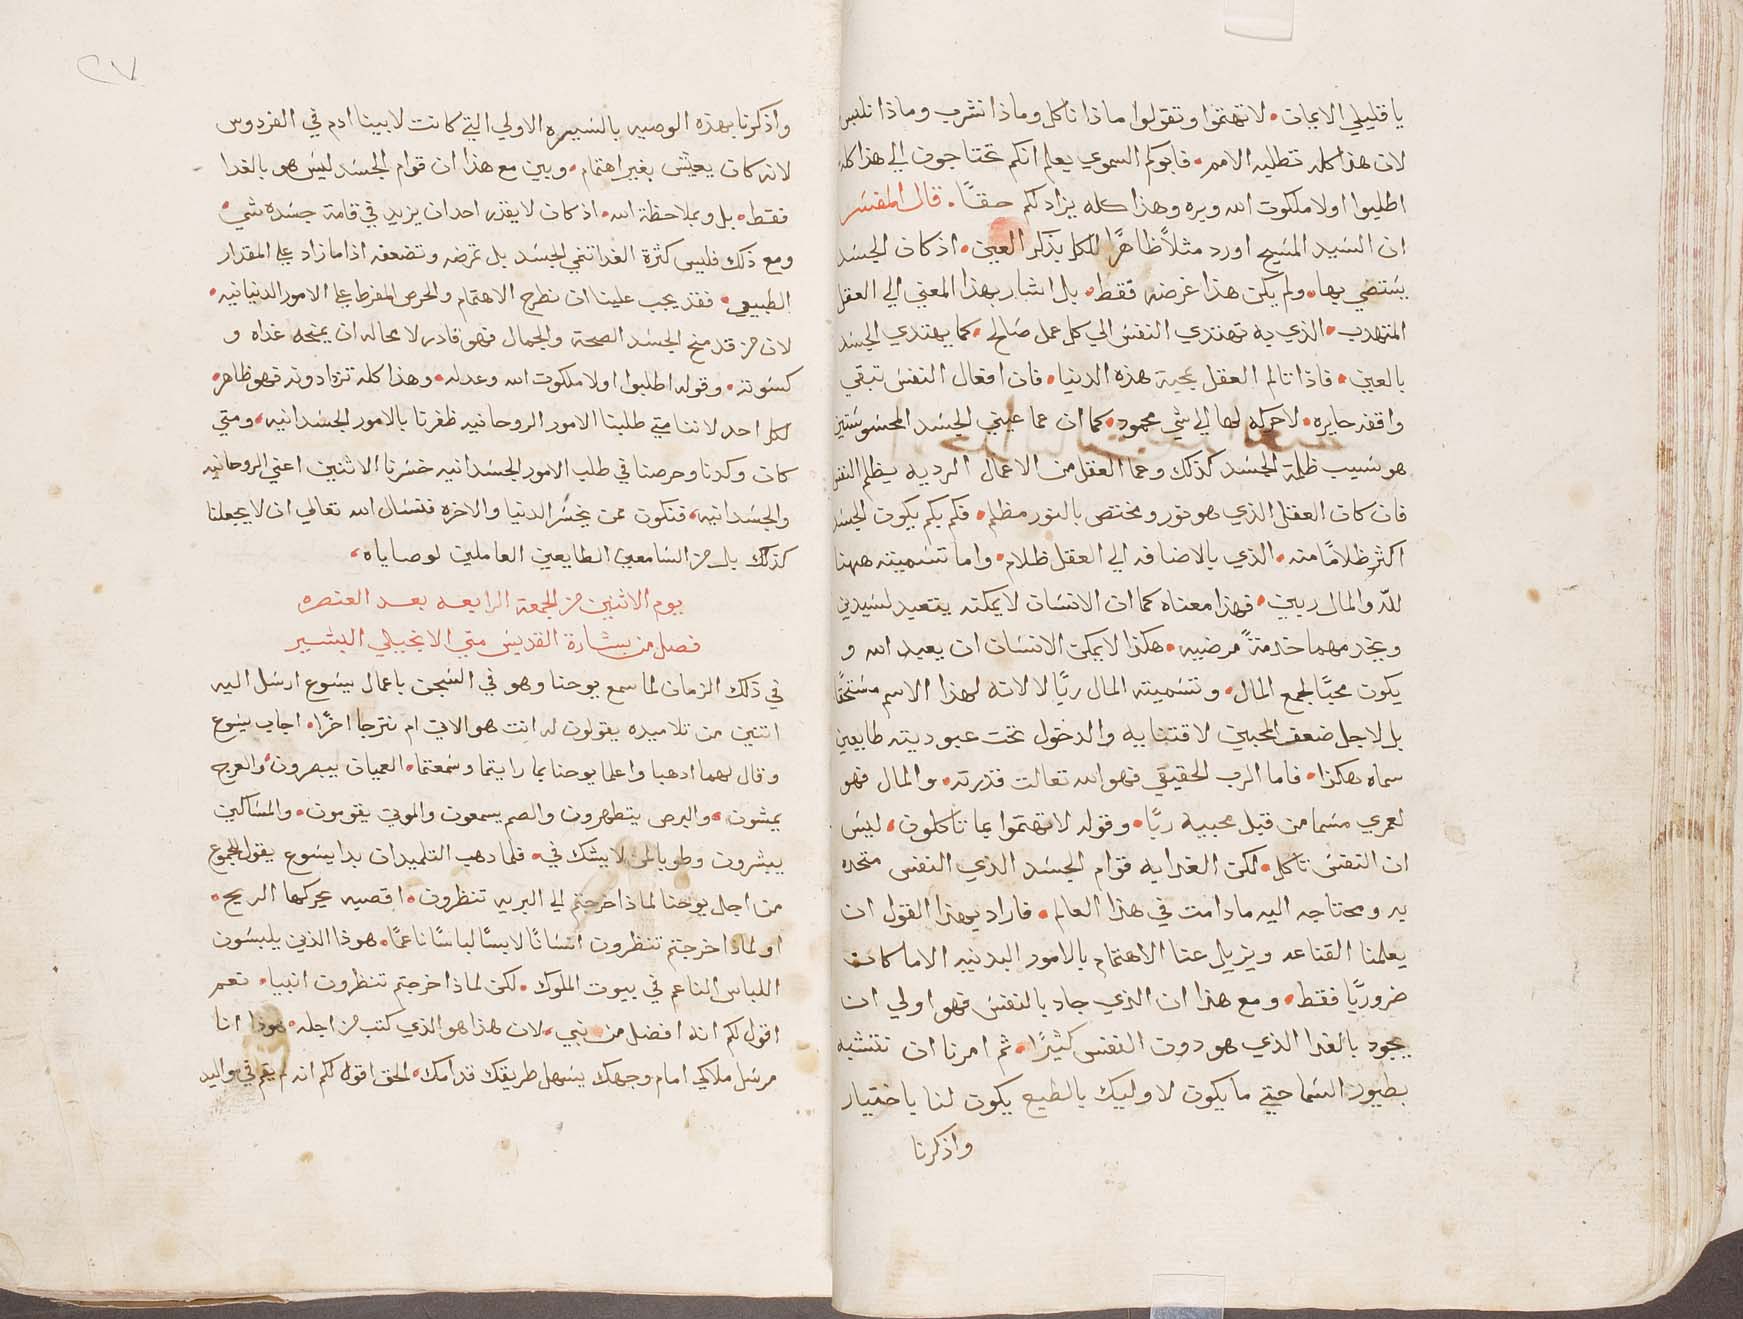 يا قليلي الايمان. لا تهتموا وتقولوا ماذا ناكل وماذا نشرب وماذا نلبس
لان هذا كله تطلبه الامم. فابوكم السموي يعلم انكم تحتاجون الي هذا كله
اطلبوا اولا ملكوت الله وبره وهذا كله يزاد لكم حقًا. قال المفسر
ان السيد المسيح اورد مثلاً ظاهرًا للكل بذكر العين. اذ كان الجسد
يستضي بها. ولم يكن هذا غرضه فقط. بل اشار بهذا المعني الي العقل
المتهدب. الذي به تهتدي النفس الي كل عمل صالح. كما يهتدي الجسد
بالعين. فاذا تالم العقل بمحبة هذه الدنيا. فان افعال النفس تبقي
واقفه حايره. لا حركه لها الي شي محمود. كما ان عما عيني الجسد المحسوستين
هو بسبب ظلمة الجسد كذلك وعما العقل من الاعمال الرديه يظلم النفس
فان كان العقل الذي هو نور ومختص بالنور مظلم. فكم بكم يكون الجسد
اكثر ظلامًا منه. الذي بالاضافه الي العقل ظلام. واما تسميته ههنا
لله والمال ربين. فهذا معناه كما ان الانسان لا يمكنه يتعبد لسيدين
ويخدمهما خدمتةً مرضيه. هكذا لا يمكن الانسان ان يعبد الله و
يكون محبًا لجمع المال. وتسميته المال ربًا لا لانه لهذا الاسم مستحقًا
بل لاجل ضعف المحبين لاقتنايه والدخول تحت عبوديته طايعين
سماه هكذا. فاما الرب الحقيقي فهو الله تعالت قدرته. والمال فهو
لعمري مسما من قبل محبيه ربًا. وقوله لا تهتموا بما تاكلون، ليس
ان النفس تاكل. لكن الغدا به قوام الجسد الذي النفس متحده
به ومحتاجه اليه مادامت في هذا العالم. فاراد بهذا القول ان
يعلمنا القناعه ويزيل عنا الاهتمام بالامور البدنيه الا ما كان
ضروريًا فقط. ومع هذا ان الذي جاد بالنفس فهو اولي ان
يجود بالغدا الذي هو دون النفس كثيرًا. ثم امرنا ان نتشبه
بطيور السما حتي ما يكون لاوليك بالطبع يكون لنا باختيار
واذكرنا
٢٧
واذكرنا بهذه الوصيه بالسيره الاولي التي كانت لابينا ادم في الفردوس
لانه كان يعيش بغير اهتمام. وبين مع هذا ان قوام الجسد ليس هو بالغدا
فقط. بل وبملاحظة الله. اذ كان لا يقدر احد ان يزيد في قامة جسده شي.
ومع ذلك فليس كثرة الغدا تنمي الجسد بل تمرضه وتضعفه اذا ما زاد علي المقدار
الطبيعي. فقد يجب علينا ان نطرح الاهتمام والحرص المفرط علي الامور الدنيانيه.
لان من قد منح الجسد الصحة والجمال فهو قادر لا محاله ان يمنحه غداه و
كسوته. وقوله اطلبوا اولا ملكوت الله وعدله. وهذا كله تزدادونه فهو ظاهر.
لكل احد لاننا متي طلبنا الامور الروحانيه ظفرنا بالامور الجسدانيه، ومتي
كان وكدنا وحرصنا في طلب الامور الجسدانيه خسرنا الاثنين اعني الروحانيه
والجسدانيه، فنكون ممن يخسر الدنيا والاخره فنسال الله تعالي ان لا يجعلنا
كذلك بل من السامعين الطايعين العاملين لوصاياه،
يوم الاثنين من الجمعة الرابعه بعد العنصره
فصل من بشارة القديس متي الانجيلي البشير
في ذلك الزمان لما سمع يوحنا وهو في السجن باعمال يسوع ارسل اليه
اتنين من تلاميده يقولون له انت هو الاتي ام نترجا اخرًا. اجاب يسوع
وقال لهما ادهبا واعلما يوحنا بما رايتما وسمعتما. العميان يبصرون، والعرج
يمشون، والبرص يتطهرون والصم يسمعون والموتي يقومون. والمساكين
يبشرون وطوبا لمن لا يشك في. فلما دهب التلميدان بدا يسوع يقول للجموع
من اجل يوحنا لماذا خرجتم الي البريه تنظرون. اقصبه تحركها الريح.
او لماذا خرجتم تنظرون انسانًا لابسًا لباسًا ناعمًا. هوذا الذين يلبسون
اللباس الناعم في بيوت الملوك. لكن لماذا خرجتم تنظرون انبيا. نعم
اقول لكم انه افضل من نبي، لان هذا هو الذي كتب من اجله. هوذا انا
مرسل ملاكي امام وجهك يسهل طريقك قدامك. الحق اقول لكم انه لم يقم في مواليد